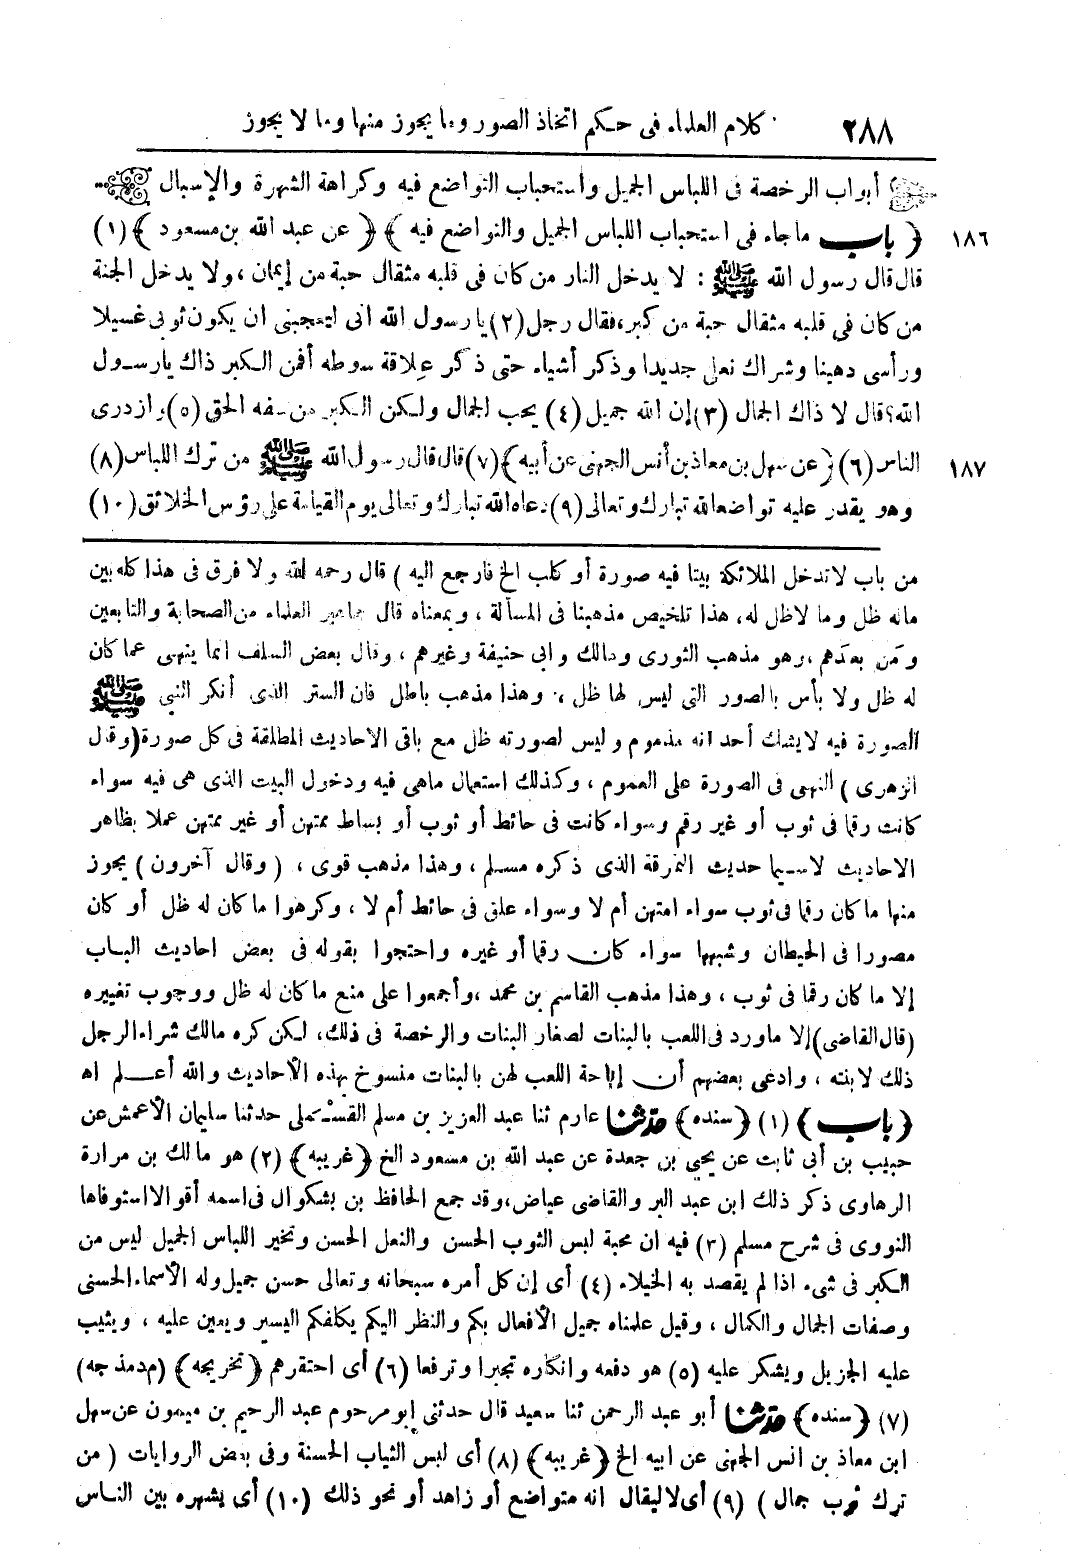 ٢٨٨ كلام العلماء فى حكم اتخاذ الصور وما يجوز منها وما لا يجوز
أبواب الرخصة فى اللباس الجميل واستحباب التواضع فيه وكراهة الشهرة والإسبال
١٨٦ ﴿ باب ماجاء فى استحباب اللباس الجميل والتواضع فيه ﴾ ﴿ عن عبد الله بن مسعود ﴾ (١)
قال قال رسول الله ﷺ : لا يدخل النار من كان فى قلبه مثقال حبة من إيمان ، ولا يدخل الجنة
من كان فى قلبه مثقال حبة من كبر، فقال رجل (٢) يا رسول الله انى ليعجبنى ان يكون ثوبى غسيلا
ورأسى دهينا وشراك نعلى جديدا وذكر أشياء حتى ذكر عِلاقة سوطه أفمن الكبر ذاك يارسول
الله؟ قال لا ذاك الجمال (٣) إن الله جميل (٤) يحب الجمال ولكن الكبر من سفه الحق (٥) وازدرى
١٨٧ الناس (٦) ﴿ عن سهل بن معاذ بن أنس الجهنى عن أبيه ﴾ (٧) قال قال رسول الله ﷺ من ترك اللباس (٨)
وهو يقدر عليه تواضعا لله تبارك وتعالى (٩) دعاه الله تبارك وتعالى يوم القيامة على رؤس الخلائق (١٠)
من باب لاتدخل الملائكة بيتا فيه صورة أو كلب الخ فارجع اليه ) قال رحمه لله ولا فرق فى هذا كله بين
ماله ظل وما لاظل له، هذا تلخيص مذهبنا فى المسألة ، وبمعناه قال جماهير العلماء من الصحابة والتابعين
ومَن بعدَهم ، وهو مذهب الثورى ومالك وابى حنيفة وغيرهم ، وقال بعض السلف انما ينهى عما كان
له ظل ولا بأس بالصور التى ليس لها ظل ، وهذا مذهب باطل فان الستر الذى أنكر النبى ﷺ
الصورة فيه لايشك أحد انه مذموم وليس لصورته ظل مع باقى الاحاديث المطلقة فى كل صورة (وقال
الزهرى ) النهى فى الصورة على العموم ، وكذلك استعمال ماهى فيه ودخول البيت الذى هى فيه سواء
كانت رقما فى ثوب أو غير رقم وسواء كانت فى حائط أو ثوب أو بساط ممتهن أو غير ممتهن عملا بظاهر
الاحاديث لاسيما حديث النمرقة الذى ذكره مسلم ، وهذا مذهب قوى ، ( وقال آخرون ) يجوز
منها ما كان رقما فى ثوب سواء امتهن أم لا وسواء علق فى حائط أم لا ، وكرهوا ما كان له ظل أو كان
مصورا فى الحيطان وشبهها سواء كان رقما أو غيره واحتجوا بقوله فى بعض احاديث الباب
إلا ما كان رقما فى ثوب ، وهذا مذهب القاسم بن محمد ، وأجمعوا على منع ما كان له ظل ووجوب تغييره
(قال القاضى) إلا ماورد فى اللعب بالبنات لصغار البنات والرخصة فى ذلك، لكن كره مالك شراء الرجل
ذلك لابنته ، وادعى بعضهم أن إباحة اللعب لهن بالبنات منسوخ بهذه الأحاديث والله أعلم اه
﴿ باب ﴾ (١) ﴿ سنده ﴾ حدثنا عارم ثنا عبد العزيز بن مسلم القسْملى حدثنا سليمان الأعمش عن
حبيب بن أبى ثابت عن يحيى بن جعدة عن عبد الله بن مسعود الخ ﴿ غريبه ﴾ (٢) هو مالك بن مرارة
الرهاوى ذكر ذلك ابن عبد البر والقاضى عياض، وقد جمع الحافظ بن بشكوال فى اسمه أقوالا استوفاها
النووى فى شرح مسلم (٣) فيه ان محبة لبس الثوب الحسن والنعل الحسن وتخير اللباس الجميل ليس من
الكبر فى شىء اذا لم يقصد به الخيلاء (٤) أى إن كل أمره سبحانه وتعالى حسن جميل وله الأسماء الحسنى
وصفات الجمال والكمال ، وقيل علمناه جميل الأفعال بكم والنظر اليكم يكلفكم اليسير ويعين عليه ، ويثيب
عليه الجزيل ويشكر عليه (٥) هو دفعه وانكاره تجبرا وترفعا (٦) أى احتقرهم ﴿ تخريجه ﴾ (م د مذ جه)
(٧) ﴿ سنده ﴾ حدثنا أبو عبد الرحمن ثنا سعيد قال حدثنى ابو مرحوم عبد الرحيم بن ميمون عن سهل
ابن معاذ بن انس الجهنى عن ابيه الخ ﴿ غريبه ﴾ (٨) أى لبس الثياب الحسنة وفى بعض الروايات ( من
ترك ثوب جمال ) (٩) أى لا ليقال انه متواضع أو زاهد أو نحو ذلك (١٠) أى يشهره بين الناس